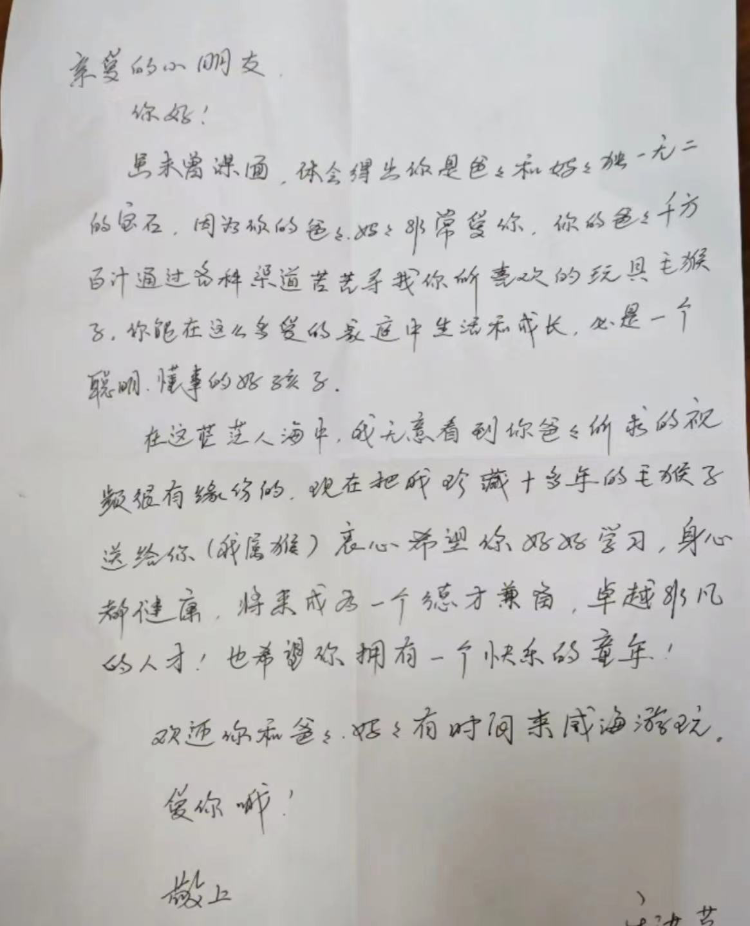 亲爱的小朋友,
你好!
虽未曾谋面,体会得出你是爸々和妈々独一无二
的宝石,因为你的爸々、妈々非常爱你,你的爸々千方
百计通过各种渠道苦苦寻找你所喜欢的玩具毛猴
子,你能在这么多爱的家庭中生活和成长,必是一个
聪明、懂事的好孩子。
在这茫茫人海中,我无意看到你爸々所求的视
频很有缘份的,现在把我珍藏十多年的毛猴子
送给你(我属猴)衷心希望你好好学习,身心
都健康,将来成为一个德才兼备,卓越非凡
的人才!也希望你拥有一个快乐的童年!
欢迎你和爸々、妈々有时间来威海游玩。
爱你哦!
敬上